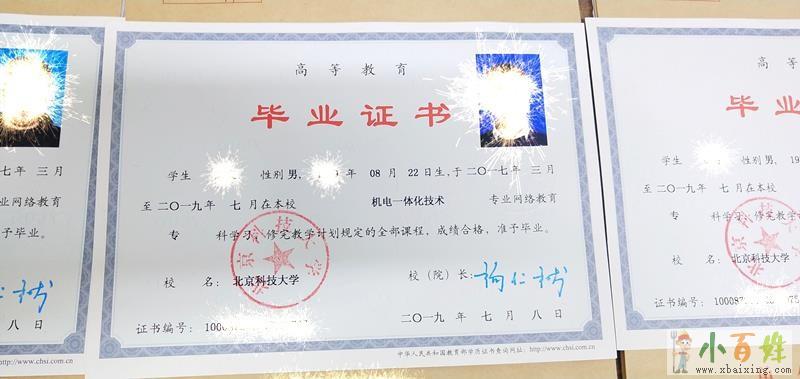 高等教育
毕业证书
学生 性别男, 年 08月 22日生,于二〇一七年 三月
至二〇一九年 七月在本校 机电一体化技术 专业网络教育
专 科学习,修完教学计划规定的全部课程,成绩合格,准予毕业。
校 名: 北京科技大学 校(院)长:
证书编号: 二〇一九年 七月 八日
中华人民共和国教育部学历证书查询网址: http://www.chsi.com.cn
北京科技大学
七年 三月
业网络教育
予毕业。
八日
http://www.chsi.com.cn
高等
毕业
学生 性别男, 19
至二〇一九年 七月在本校
专 科学习,修完教学计划规
校 名: 北京科技大学
证书编号:
小百姓
www.xbaixing.com